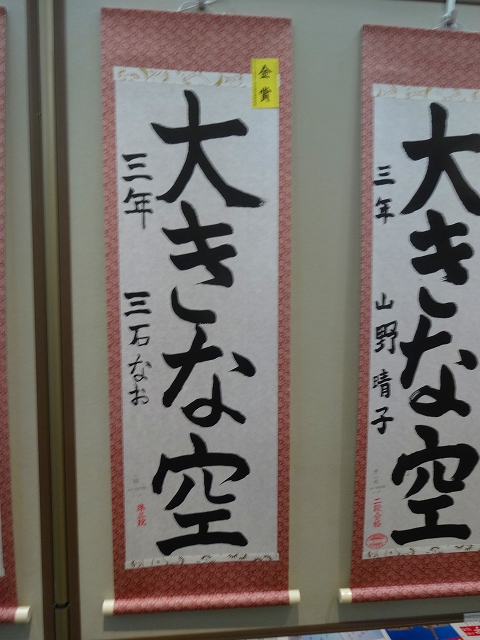 大きな空
三年 山野晴子
金賞
大きな空
三年 三石なお